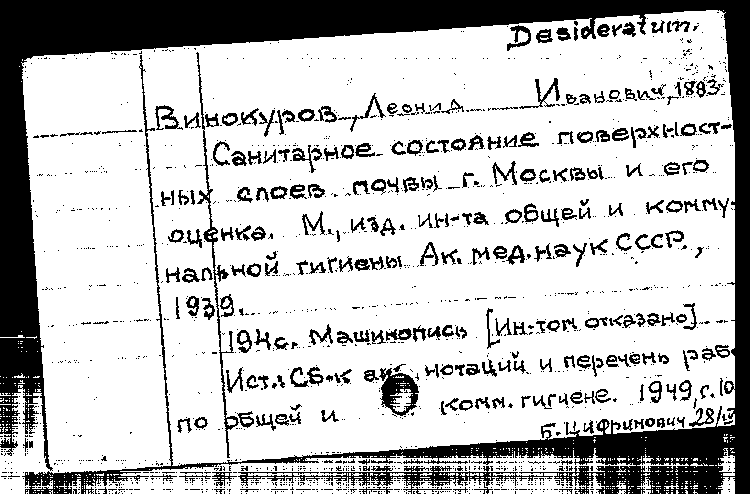 Desideratum.
Винокуров, Леонид Иванович, 1893
Санитарное состояние поверхност-
ных слоев почвы г. Москвы и его
оценка. М., изд. ин-та общей и комму-
нальной гигиены Ак. мед. наук СССР.,
1939.
194с. Машинопись [Ин-том отказано]
Ист.: Сб-к ан нотаций и перечень раб
по общей и комм. гигиене. 1949, с. 10
Б. Цифринович 28/